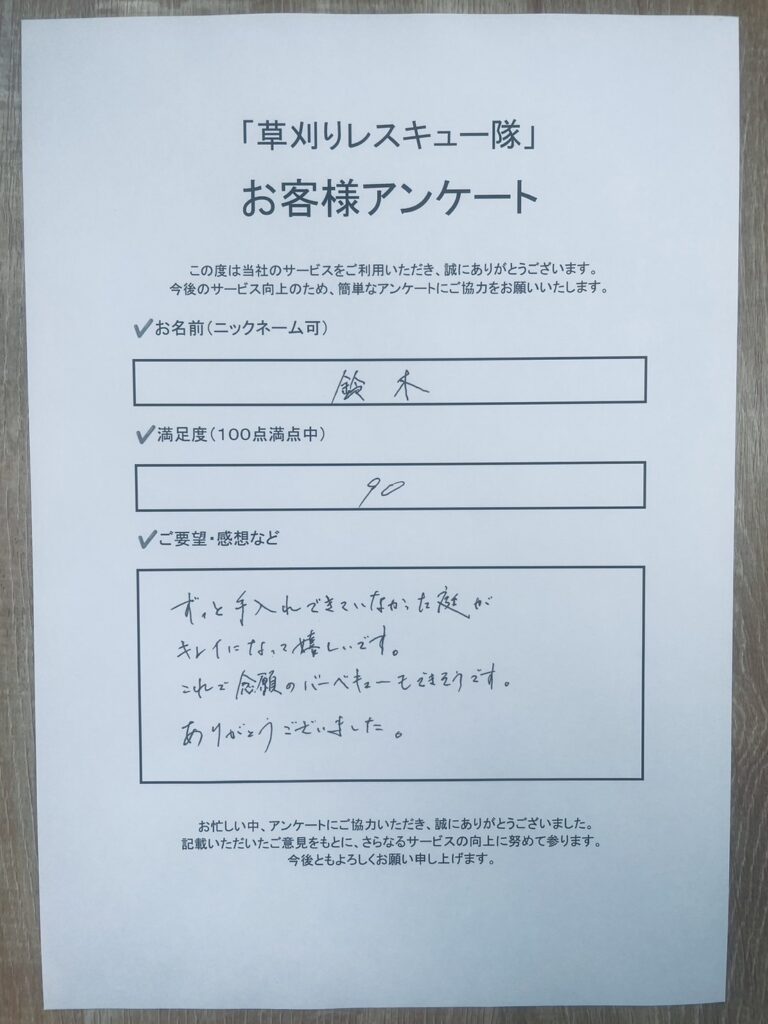 「草刈りレスキュー隊」
お客様アンケート
この度は当社のサービスをご利用いただき、誠にありがとうございます。
今後のサービス向上のため、簡単なアンケートにご協力をお願いいたします。
✔お名前(ニックネーム可)
鈴木
✔満足度(100点満点中)
90
✔ご要望・感想など
ずっと手入れできていなかった庭が
キレイになって嬉しいです。
これで念願のバーベキューもできそうです。
ありがとうございました。
お忙しい中、アンケートにご協力いただき、誠にありがとうございました。
記載いただいたご意見をもとに、さらなるサービスの向上に努めて参ります。
今後ともよろしくお願い申し上げます。